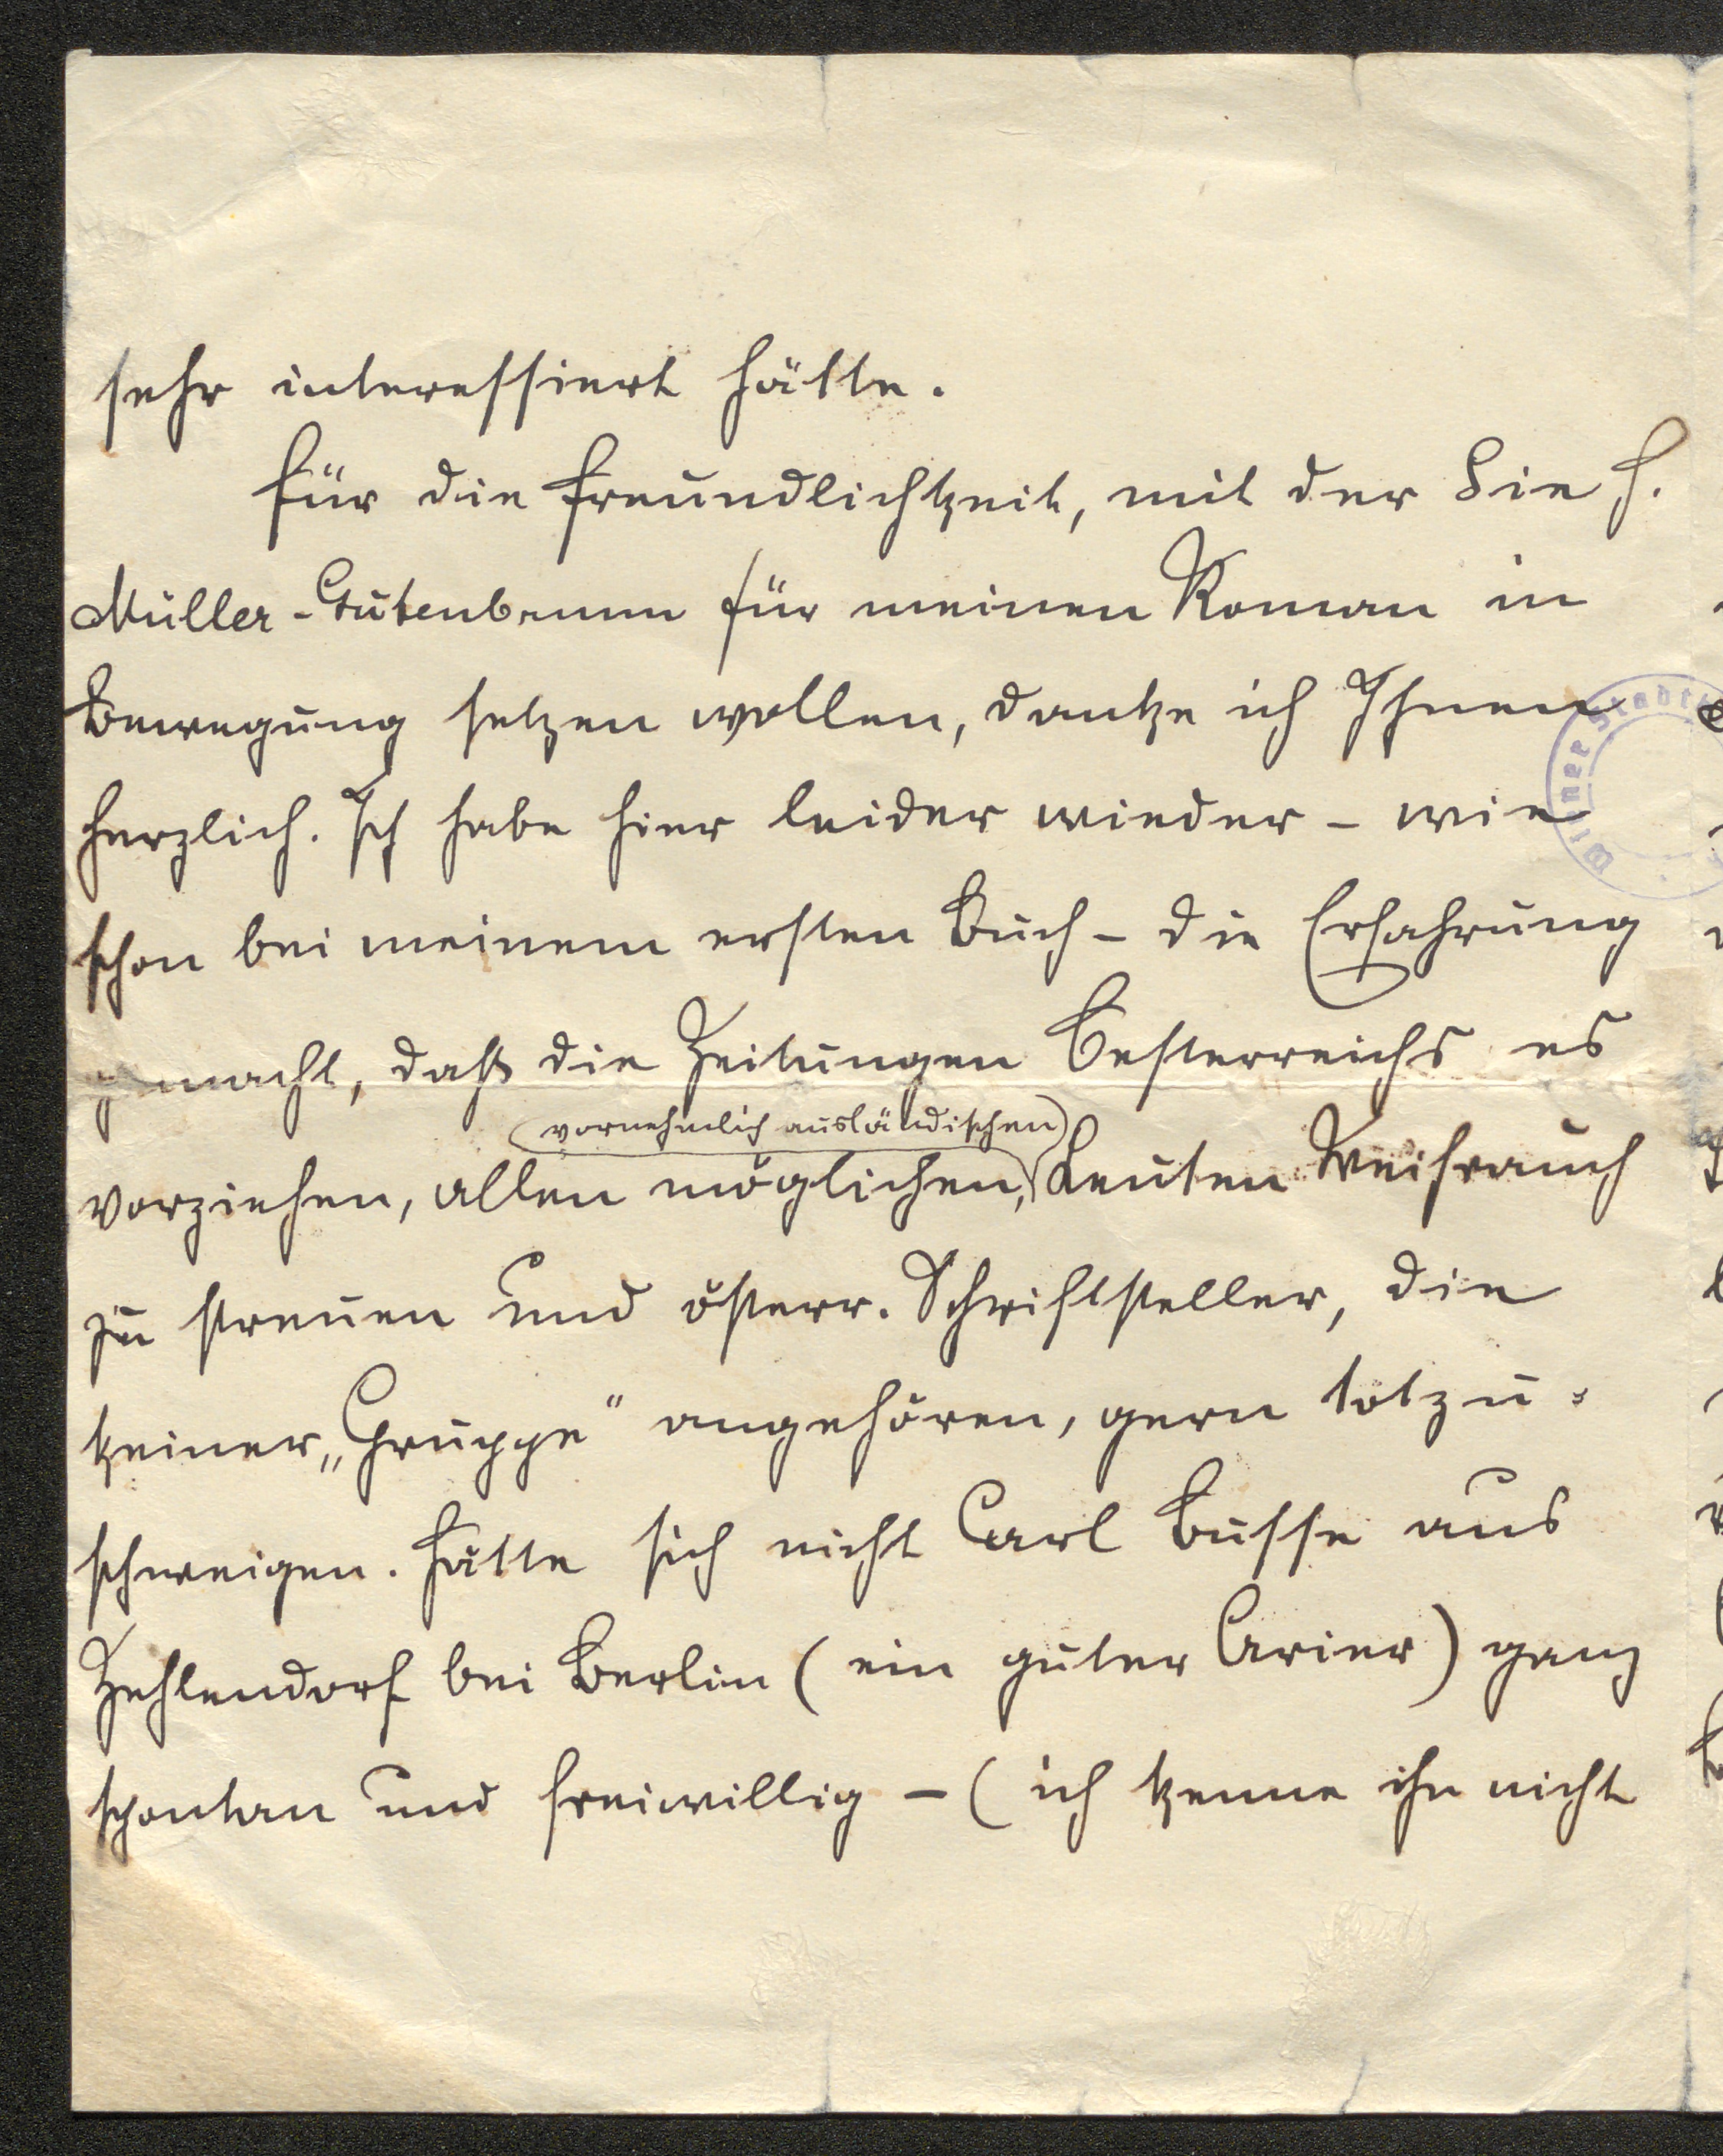 sehr interessiert hätte.
Für die Freundlichkeit, mit der Sie H.
Müller-Gutenbrunn für meinen Roman in
Bewegung setzen wollen, danke ich Ihnen
herzlich. Ich habe hier leider wieder – wie
schon bei meinem ersten Buch – die Erfahrung
gemacht, daß die Zeitungen Oesterreichs es
(vornehmlich ausländischen)
vorziehen, allen möglichen, Leuten Weihrauch
zu streuen und österr. Schriftsteller, die
keiner „Gruppe“ angehören, gern totzu-
schweigen. Hätte sich nicht Carl Busse aus
Zehlendorf bei Berlin (ein guter Arier) ganz
spontan und freiwillig – (ich kenne ihn nicht
Wiener Stadt